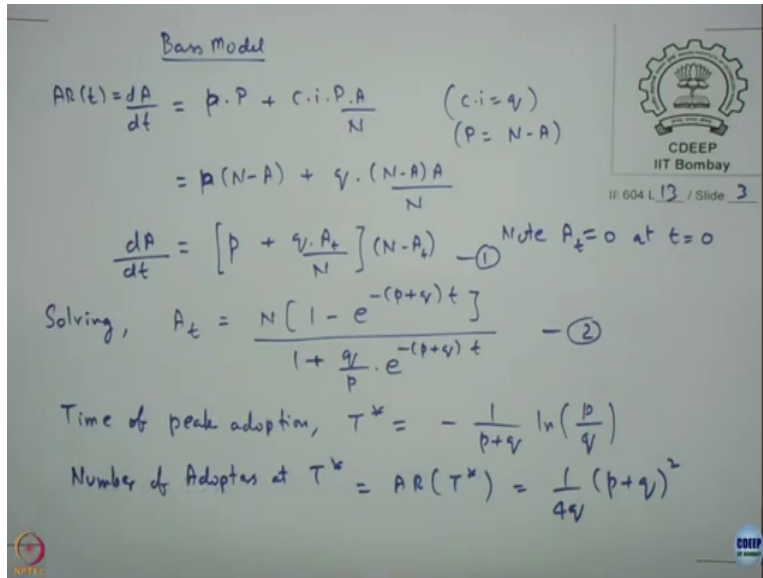 Bass Model
AR(t) = dA/dt = p.P + c.i.P.A/N (c.i = q)
(P = N-A)
= p(N-A) + q.(N-A)A/N
dA/dt = [p + q.A_t/N](N-A_t) —① Note A_t=0 at t=0
Solving, A_t = N[1 - e^-(p+q)t] / 1 + q/p . e^-(p+q)t —②
Time of peak adoption, T* = - 1/p+q ln(p/q)
Number of Adopters at T* = AR(T*) = 1/4q (p+q)^2
CDEEP
IIT Bombay
IE 604 L 13 / Slide 3
NPTEL
CDEEP
IIT BOMBAY